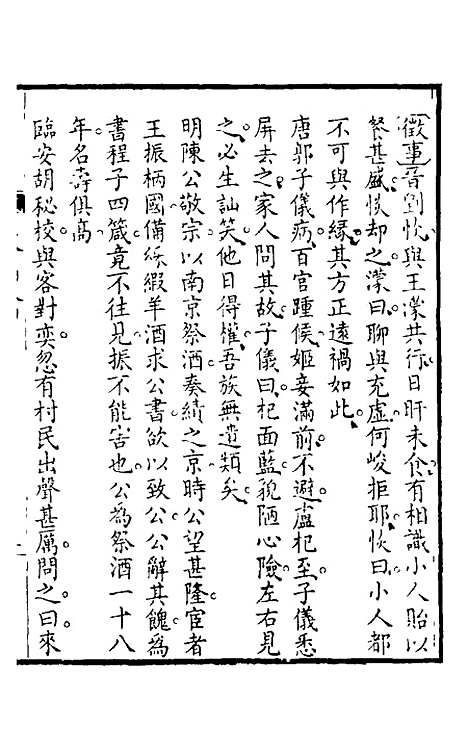 徵事晉劉惔與王濛共行日旰未食有相識小人貽以
餐甚盛惔却之濛曰聊與充虛何峻拒耶惔曰小人都
不可與作緣其方正遠禍如此
唐郭子儀病百官踵候姬妾滿前不避盧杞至子儀悉
屏去之家人問其故子儀曰杞面藍貌陋心險左右見
之必生訕笑他日得權吾族無遺類矣
明陳公敬宗以南京祭酒奏績之京時公望甚隆宦者
王振柄國備綵緞羊酒求公書欲以致公公辭其餽為
書程子四箴竟不往見振不能害也公為祭酒一十八
年名壽俱高
臨安胡秘校與客對奕忽有村民出聲甚厲問之曰來